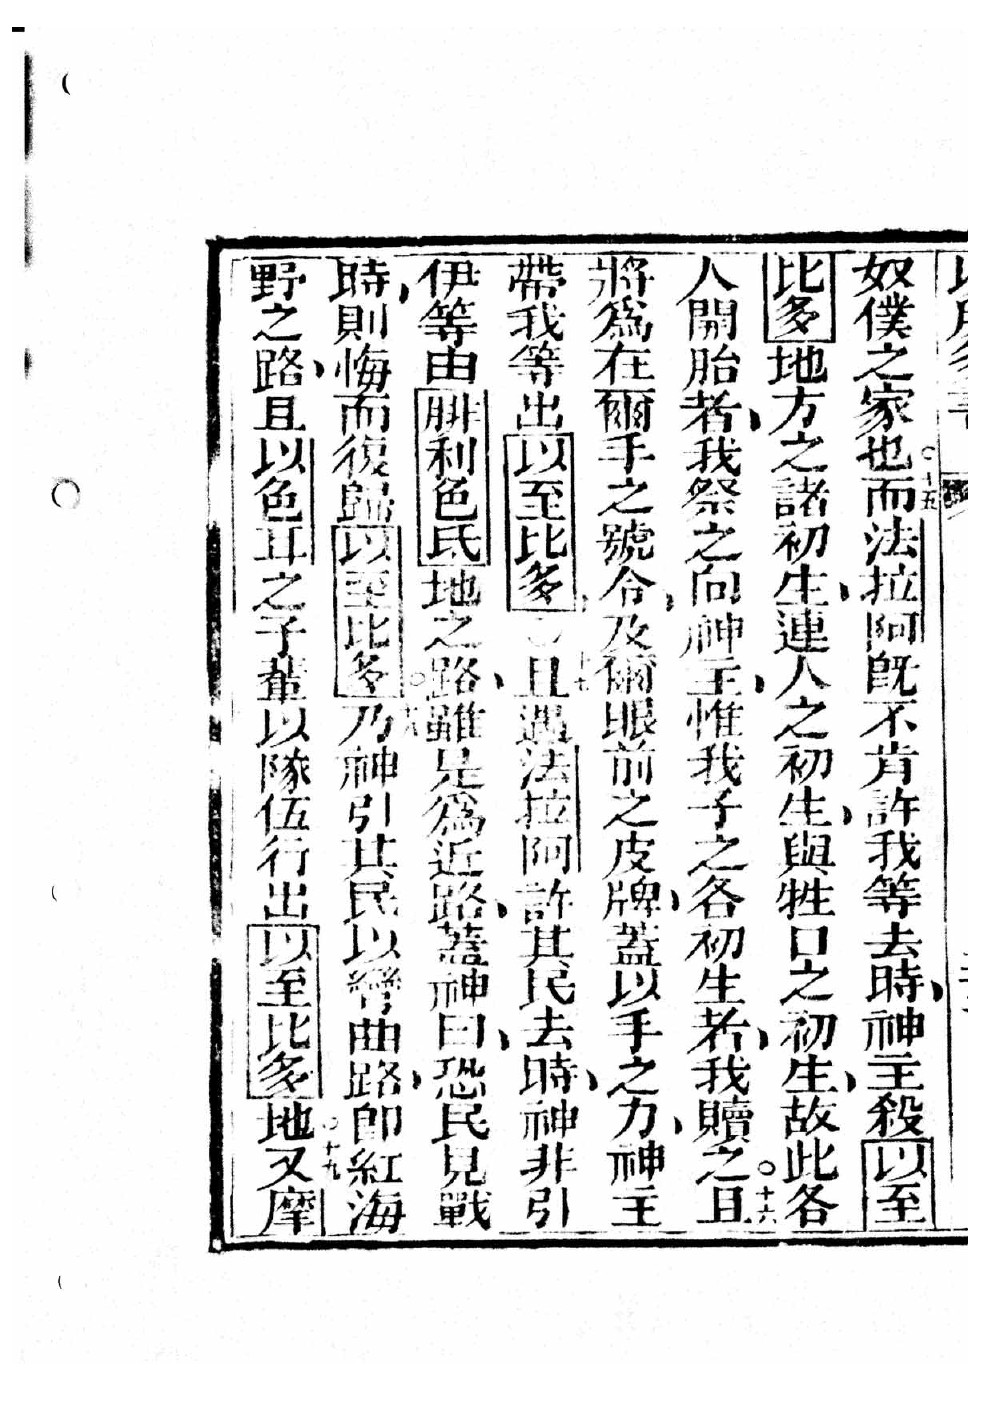 奴僕之家也○十五而法拉阿旣不肯許我等去時、神主殺以至
比多地方之諸初生、連人之初生、與牲口之初生、故此各
人開胎者、我祭之向神主、惟我子之各初生者、我贖之○十六且
將爲在爾手之號令、及爾眼前之皮牌、蓋以手之力、神主
帶我等出以至比多、○十七且遇法拉阿許其民去時、神非引
伊等由腓利色氏地之路、雖是爲近路、蓋神曰、恐民見戰
時、則悔而復歸以至比多○十八乃神引其民以彎曲路、卽紅海
野之路、且以色耳之子輩以隊伍行出以至比多地○十九又摩